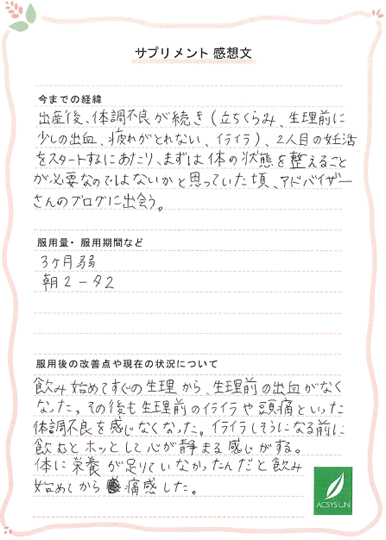 サプリメント 感想文
今までの経緯
出産後、体調不良が続き(立ちくらみ、生理前に
少しの出血、疲れがとれない、イライラ)、2人目の妊活
をスタートするにあたり、まずは体の状態を整えること
が必要なのではないかと思っていた頃、アドバイザー
さんのブログに出会う。
服用量・服用期間など
3ヶ月弱
朝2-夕2
服用後の改善点や現在の状況について
飲み始めてすぐの生理から、生理前の出血がなく
なった。その後も生理前のイライラや頭痛といった
体調不良を感じなくなった。イライラしそうになる前に
飲むとホッとして心が静まる感じがする。
体に栄養が足りていなかったんだと飲み
始めてから痛感した。
ACSYSUN